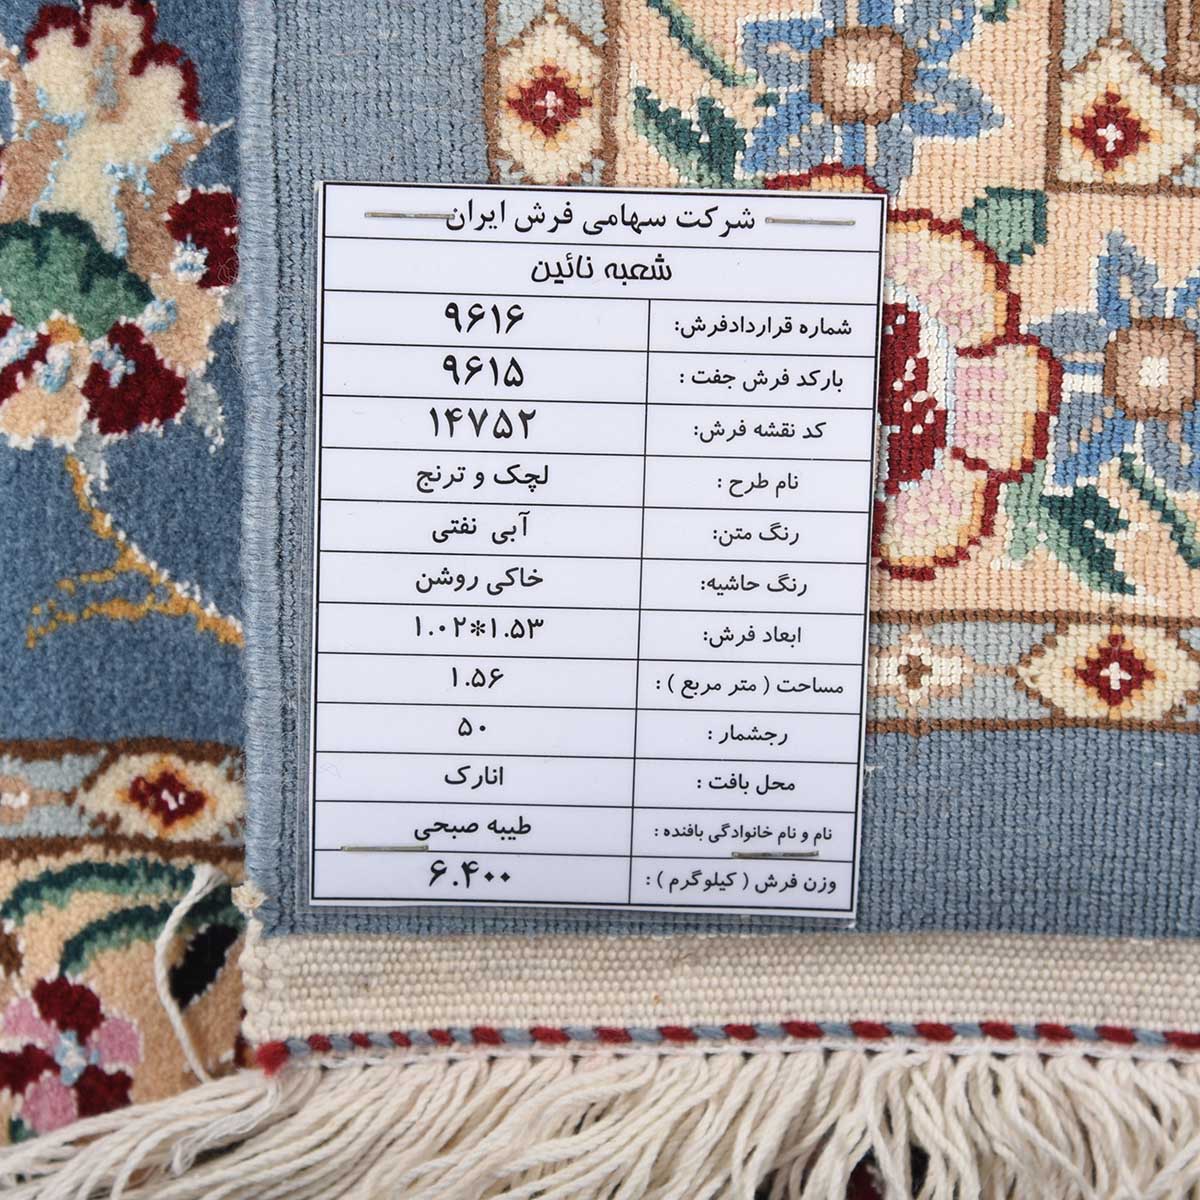 شرکت سهامی فرش ایران
شعبه نائین
شماره قراردادفرش: ۹۶۱۶
بارکد فرش جفت : ۹۶۱۵
کد نقشه فرش: ۱۴۷۵۲
نام طرح : لچک و ترنج
رنگ متن: آبی نفتی
رنگ حاشیه: خاکی روشن
ابعاد فرش: ۱.۵۳*۱.۰۲
مساحت ( متر مربع ) : ۱.۵۶
رجشمار : ۵۰
محل بافت : انارک
نام و نام خانوادگی بافنده : طیبه صبحی
وزن فرش ( کیلوگرم ) : ۶.۴۰۰